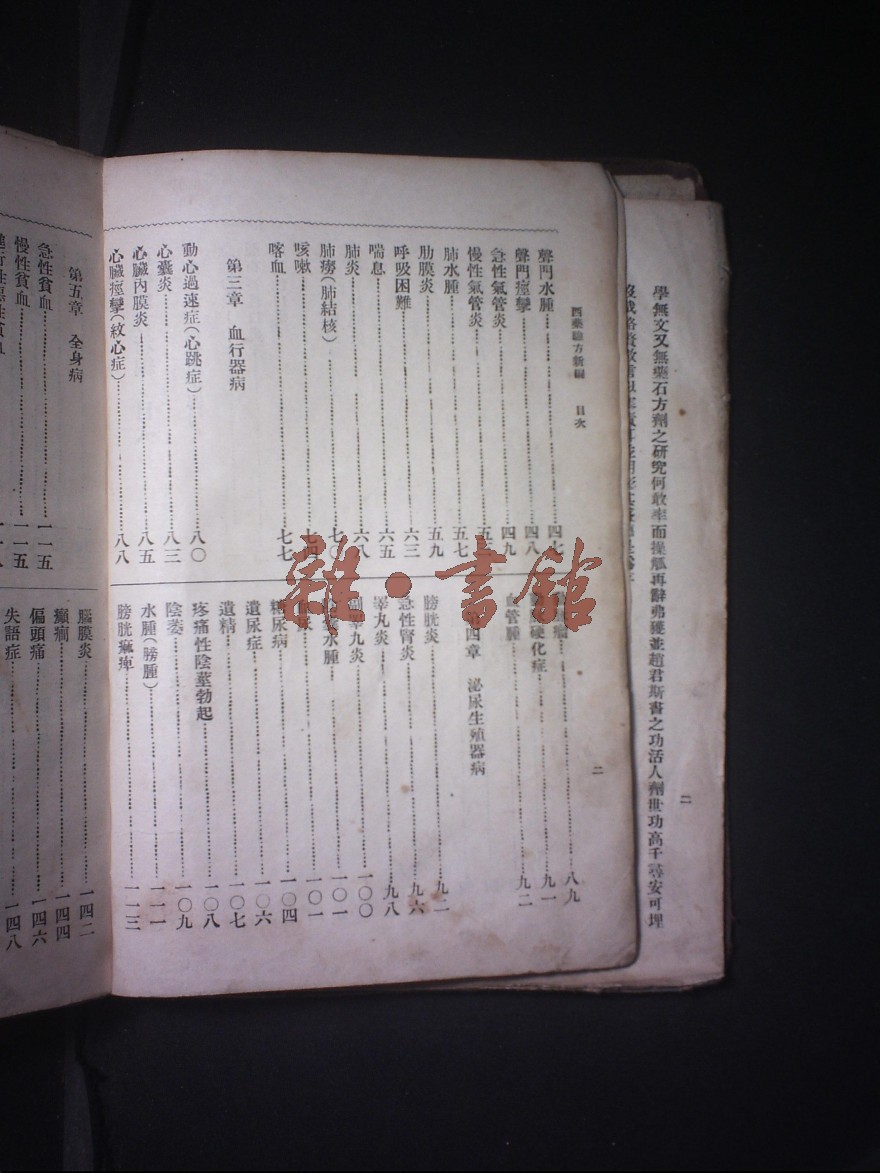 學無文又無藥石方劑之研究何敢率而操觚再辭弗獲並趙君斯書之功活人劑世功高千尋安可埋
二
西藥驗方新編 目次
聲門水腫 四七
聲門痙攣 四八
急性氣管炎 四九
慢性氣管炎 五
肺水腫 五七
肋膜炎 五九
呼吸困難 六三
喘息 六五
肺炎 六八
肺癆(肺結核) 七〇
咳嗽 七四
喀血 七七
第三章 血行器病
動心過速症(心跳症) 八〇
心囊炎 八三
心臟內膜炎 八五
心臟痙攣(紋心症) 八八
八九
硬化症 九一
血管腫 九二
第四章 泌尿生殖器病
膀胱炎 九二
急性腎炎 九六
睾丸炎 九八
副睾丸炎 一〇〇
水腫 一〇一
尿 一〇一
糖尿病 一〇四
遺尿症 一〇六
遺精 一〇七
疼痛性陰莖勃起 一〇八
陰萎 一〇九
水腫(膀腫) 一一一
膀胱痲痺 一一三
二
第五章 全身病
急性貧血 一一五
慢性貧血 一一五
腦膜炎 一四二
癲癇 一四四
偏頭痛 一四六
失語症 一四八
雜·書館